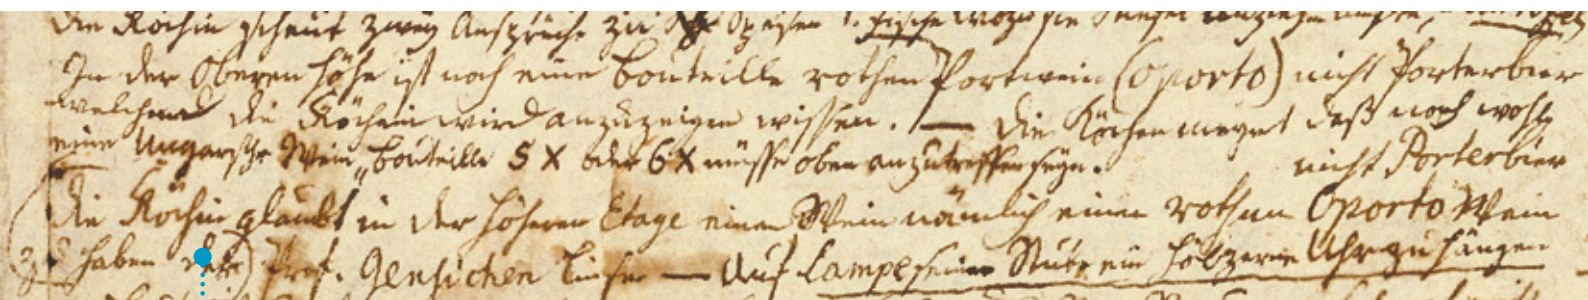 Die Köchin scheut zwey Ansprüche zu Speisen 1. Fische wozu sie
In der Oberen Höhe ist noch eine Bouteille rothen Portwein (Oporto) nicht Porterbier
welches die Köchin wird anzuzeigen wissen. — Die Köchen meynet daß noch wohl
eine Ungarsche Wein„Bouteille 5 X oder 6 X müsse oben anzutreffen seyn.
nicht Porterbier
Die Köchin glaubt in der höheren Etage einen Wein nämlich einen rothen Oporto Wein
zu haben Prof. Gensichen — Auf Lampe seiner Stube ein hölzerne Uhr zu hängen